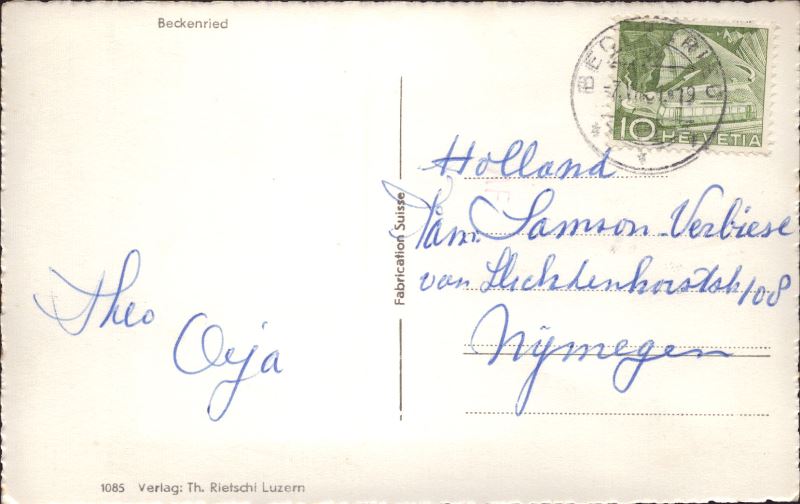 Beckenried
BECKENRIED
10 HELVETIA
Holland
Fam. Samson-Verbiese
van Slichtenhorststr 108
Nijmegen
Theo
Orja
Fabrication Suisse
1085 Verlag: Th. Rietschi Luzern